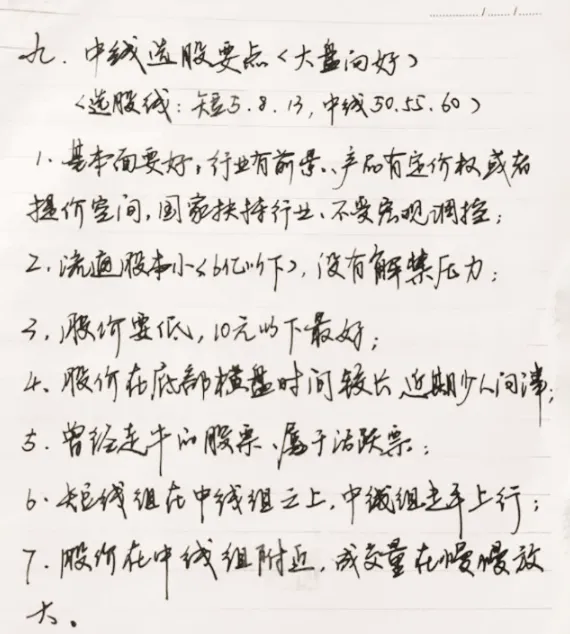 九. 中线选股要点<大盘向好>
<选股线: 短5.8.13, 中线50.55.60>
1. 基本面要好, 行业有前景、产品有定价权或者
提价空间, 国家扶持行业、不受宏观调控;
2. 流通股本小<6亿以下>, 没有解禁压力;
3. 股价要低, 10元以下最好;
4. 股价在底部横盘时间较长, 近期少人问津;
5. 曾经走牛的股票、属于活跃票;
6. 短线组在中线组之上, 中线组走平上行;
7. 股价在中线组附近, 成交量在慢慢放
大。